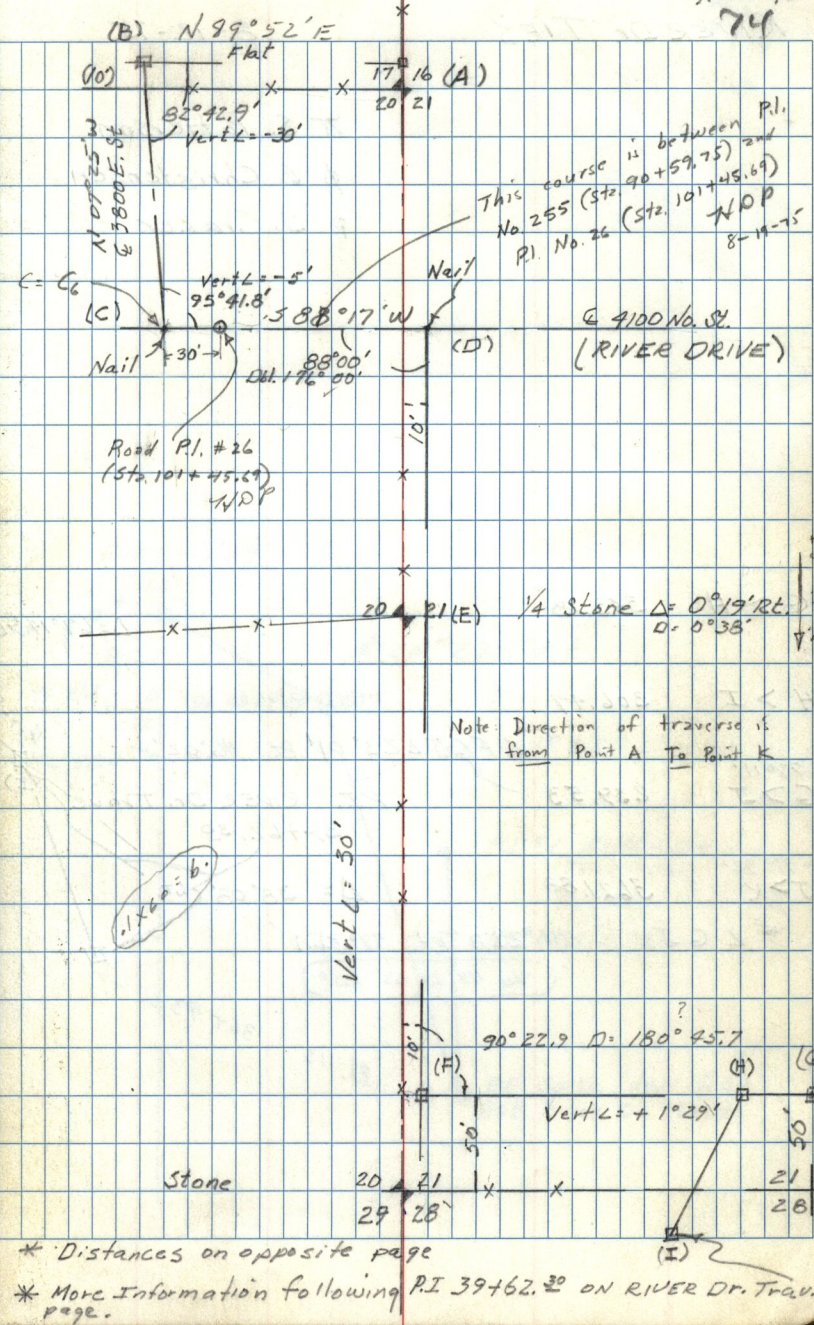 74
(B) N 89°52' E
Flat
(10')
17 16 (A)
20 21
82°42.9'
Vert∠ = -30'
N 07°25' W
℄ 3800 E. St
This course is between P.I.
No. 255 (Sta. 90+59.75) and
P.I. No. 26 (Sta. 101+45.69)
HDP
8-19-75
Nail
C = C6
Vert∠ = -5'
95°41.8'
(C)
S 88°17' W
℄ 4100 No. St.
(D)
(RIVER DRIVE)
Nail
30'
88°00'
Dbl. 176°00'
10'
Road P.I. #26
(Sta. 101+45.69)
HDP
20 21 (E)
1/4 Stone Δ= 0°19' Rt.
D= 0°38'
Note: Direction of traverse is
from Point A To Point K
Vert∠ = 30'
.1x60 = 6.
?
90°22.9 D= 180°45.7
10'
(F)
(H)
(G
Vert∠= + 1°29'
50'
50'
Stone
20 21
29 28
21
28
(I)
* Distances on opposite page
* More Information following P.I 39+62.30 ON RIVER Dr. Trav.
page.